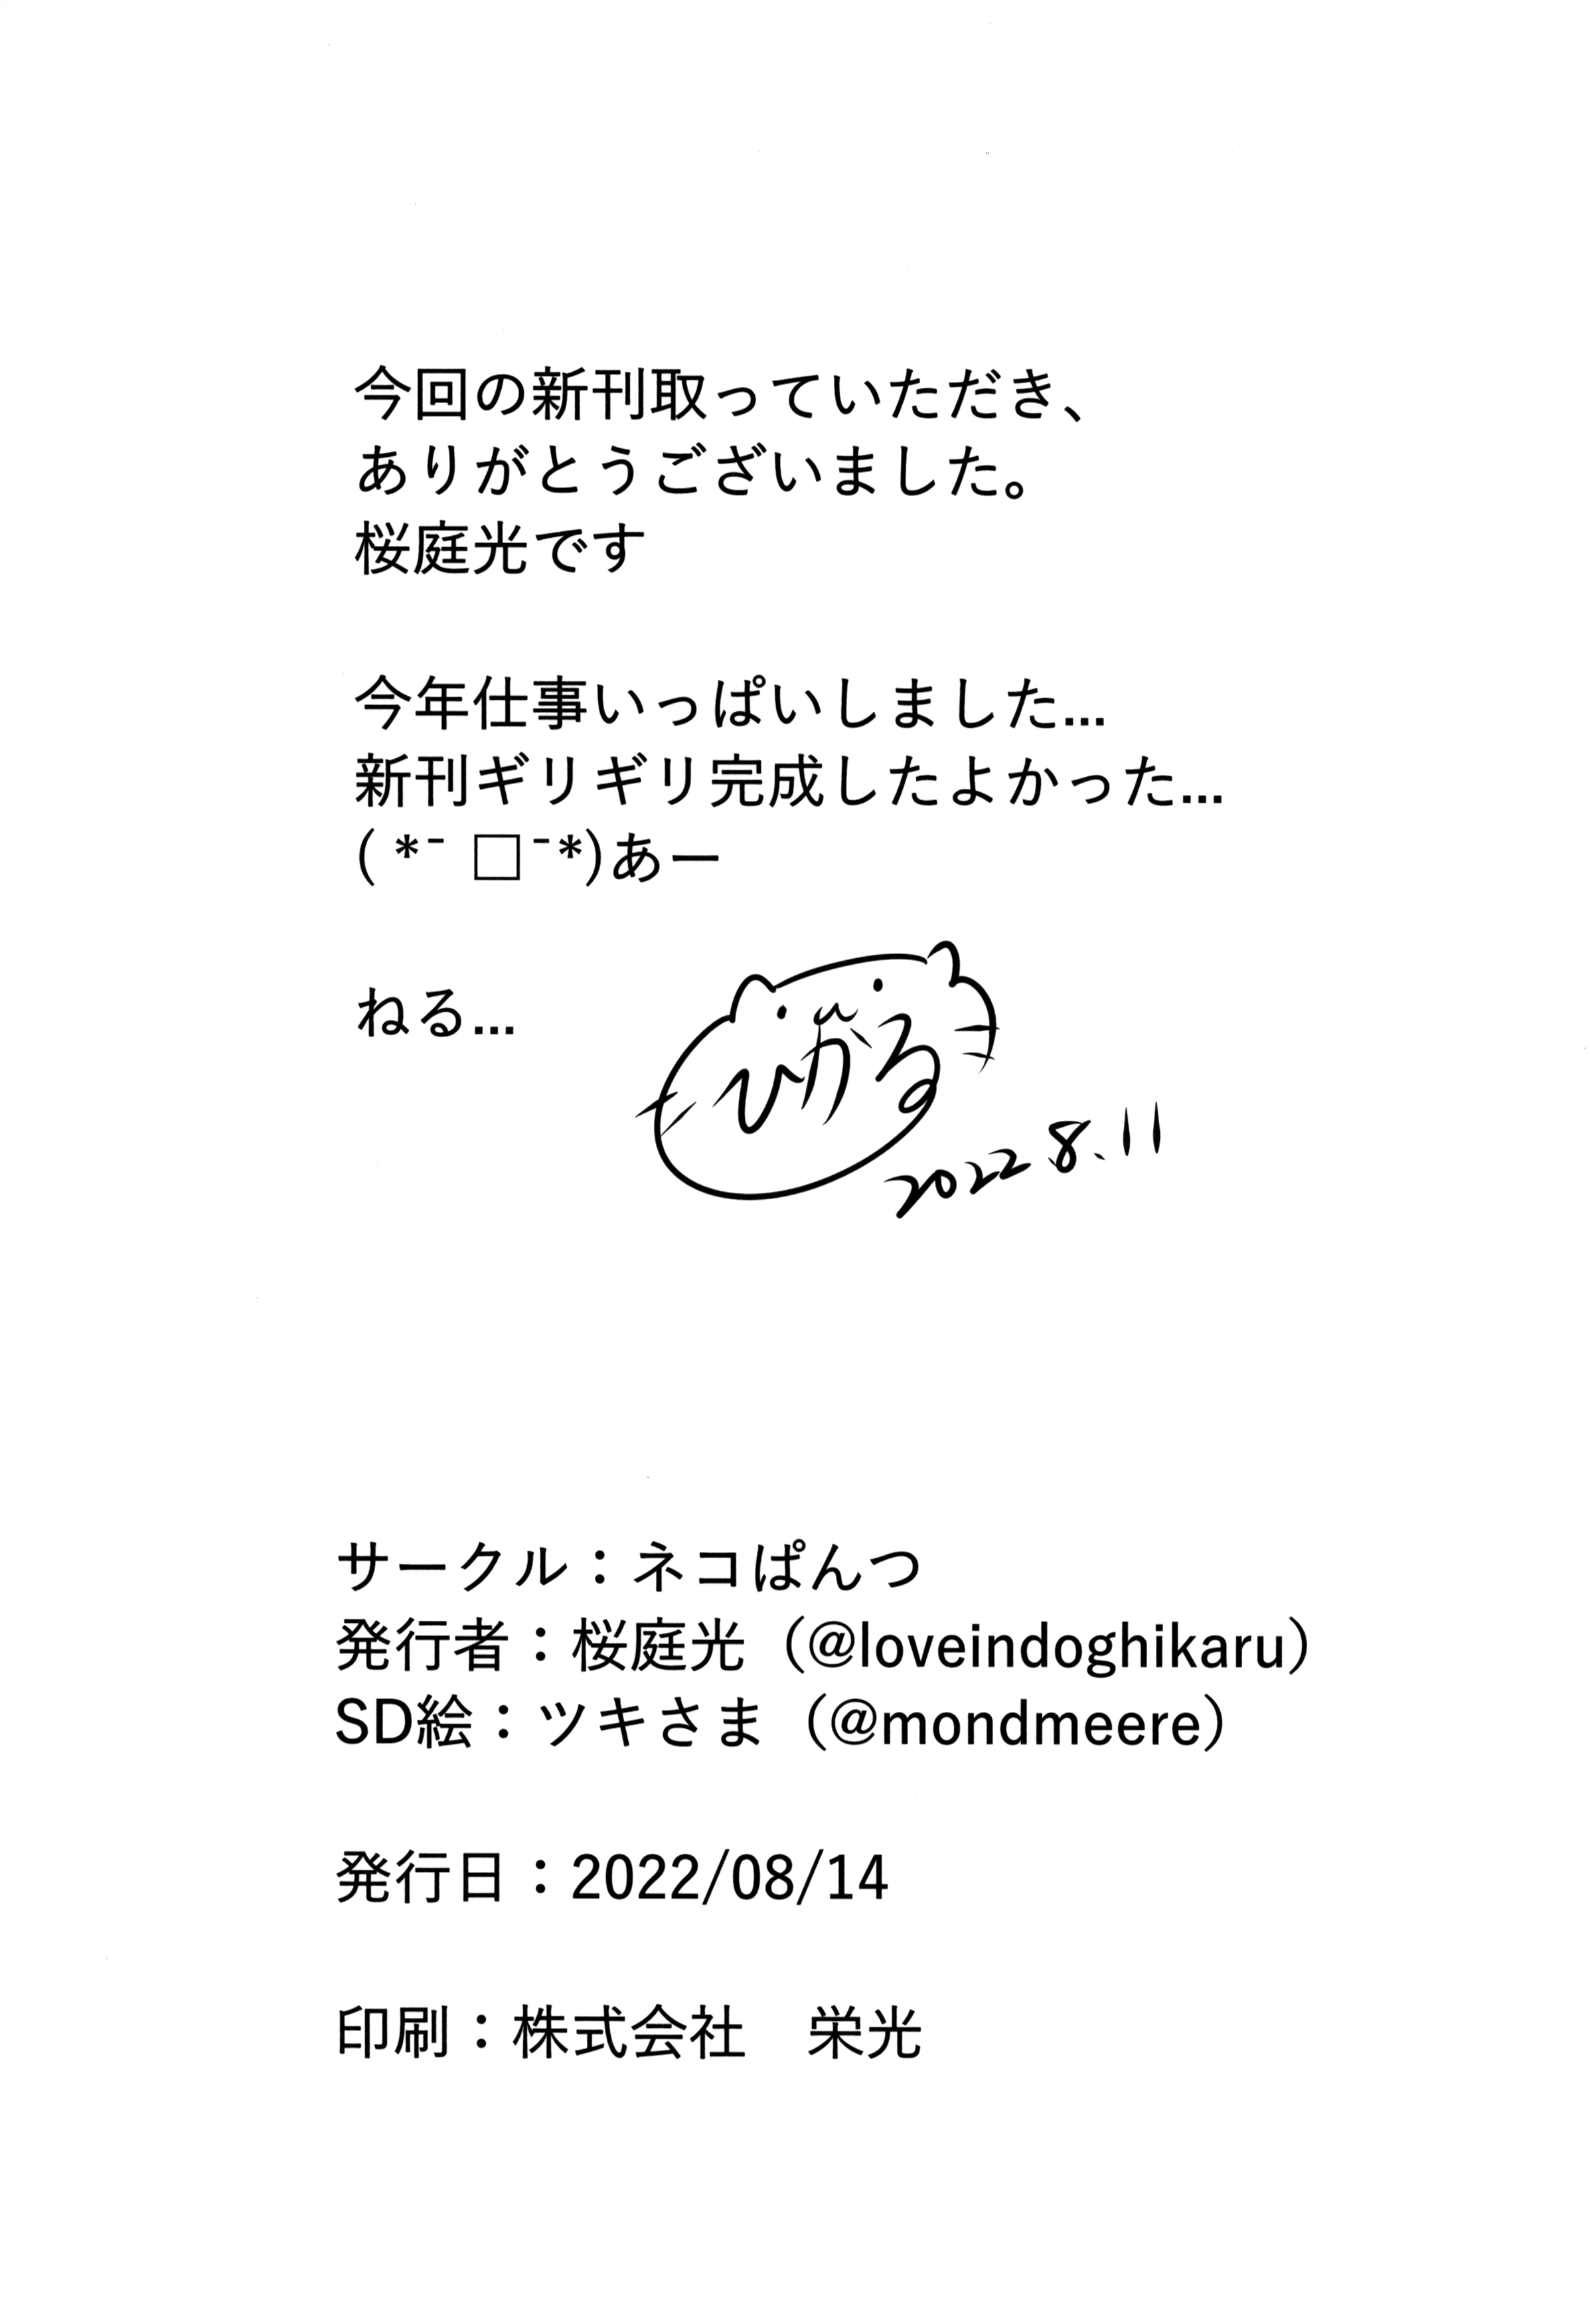 今回の新刊取っていただき、
ありがとうございました。
桜庭光です
今年仕事いっぱいしました…
新刊ギリギリ完成したよかった…
( *¯ □¯*)あー
ねる…
ひかる
2022 8.11
サークル：ネコぱんつ
発行者：桜庭光（@loveindoghikaru）
SD絵：ツキさま（@mondmeere）
発行日：2022/08/14
印刷：株式会社　栄光